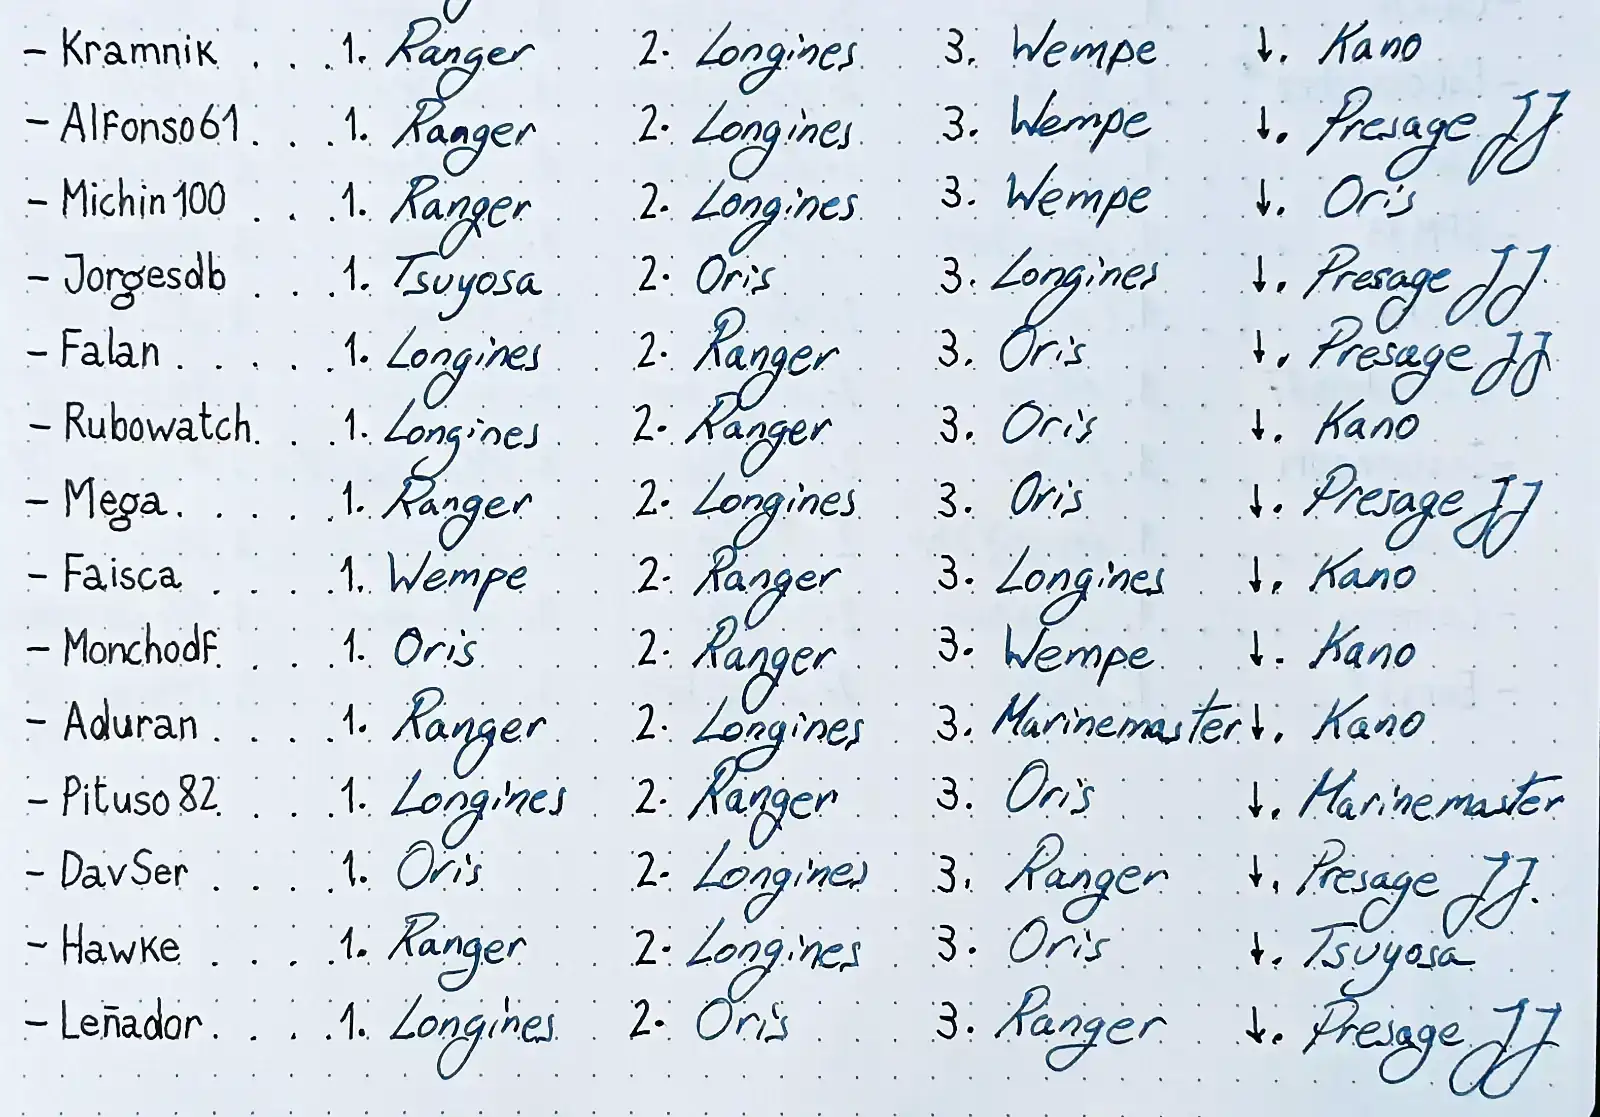 - Kramnik . . . 1. Ranger 2. Longines 3. Wempe ↓. Kano
- Alfonso61 . . . 1. Ranger 2. Longines 3. Wempe ↓. Presage JJ
- Michin100 . . . 1. Ranger 2. Longines 3. Wempe ↓. Oris
- Jorgesdb . . . 1. Tsuyosa 2. Oris 3. Longines ↓. Presage JJ.
- Falan . . . . . 1. Longines 2. Ranger 3. Oris ↓. Presage JJ
- Rubowatch . . . 1. Longines 2. Ranger 3. Oris ↓. Kano
- Mega . . . . . 1. Ranger 2. Longines 3. Oris ↓. Presage JJ
- Faisca . . . . 1. Wempe 2. Ranger 3. Longines ↓. Kano
- Monchodf . . . 1. Oris 2. Ranger 3. Wempe ↓. Kano
- Aduran . . . . 1. Ranger 2. Longines 3. Marinemaster ↓. Kano
- Pituso82 . . . 1. Longines 2. Ranger 3. Oris ↓. Marinemaster
- DavSer . . . . 1. Oris 2. Longines 3. Ranger ↓. Presage JJ.
- Hawke . . . . 1. Ranger 2. Longines 3. Oris ↓. Tsuyosa
- Leñador . . . . 1. Longines 2. Oris 3. Ranger ↓. Presage JJ